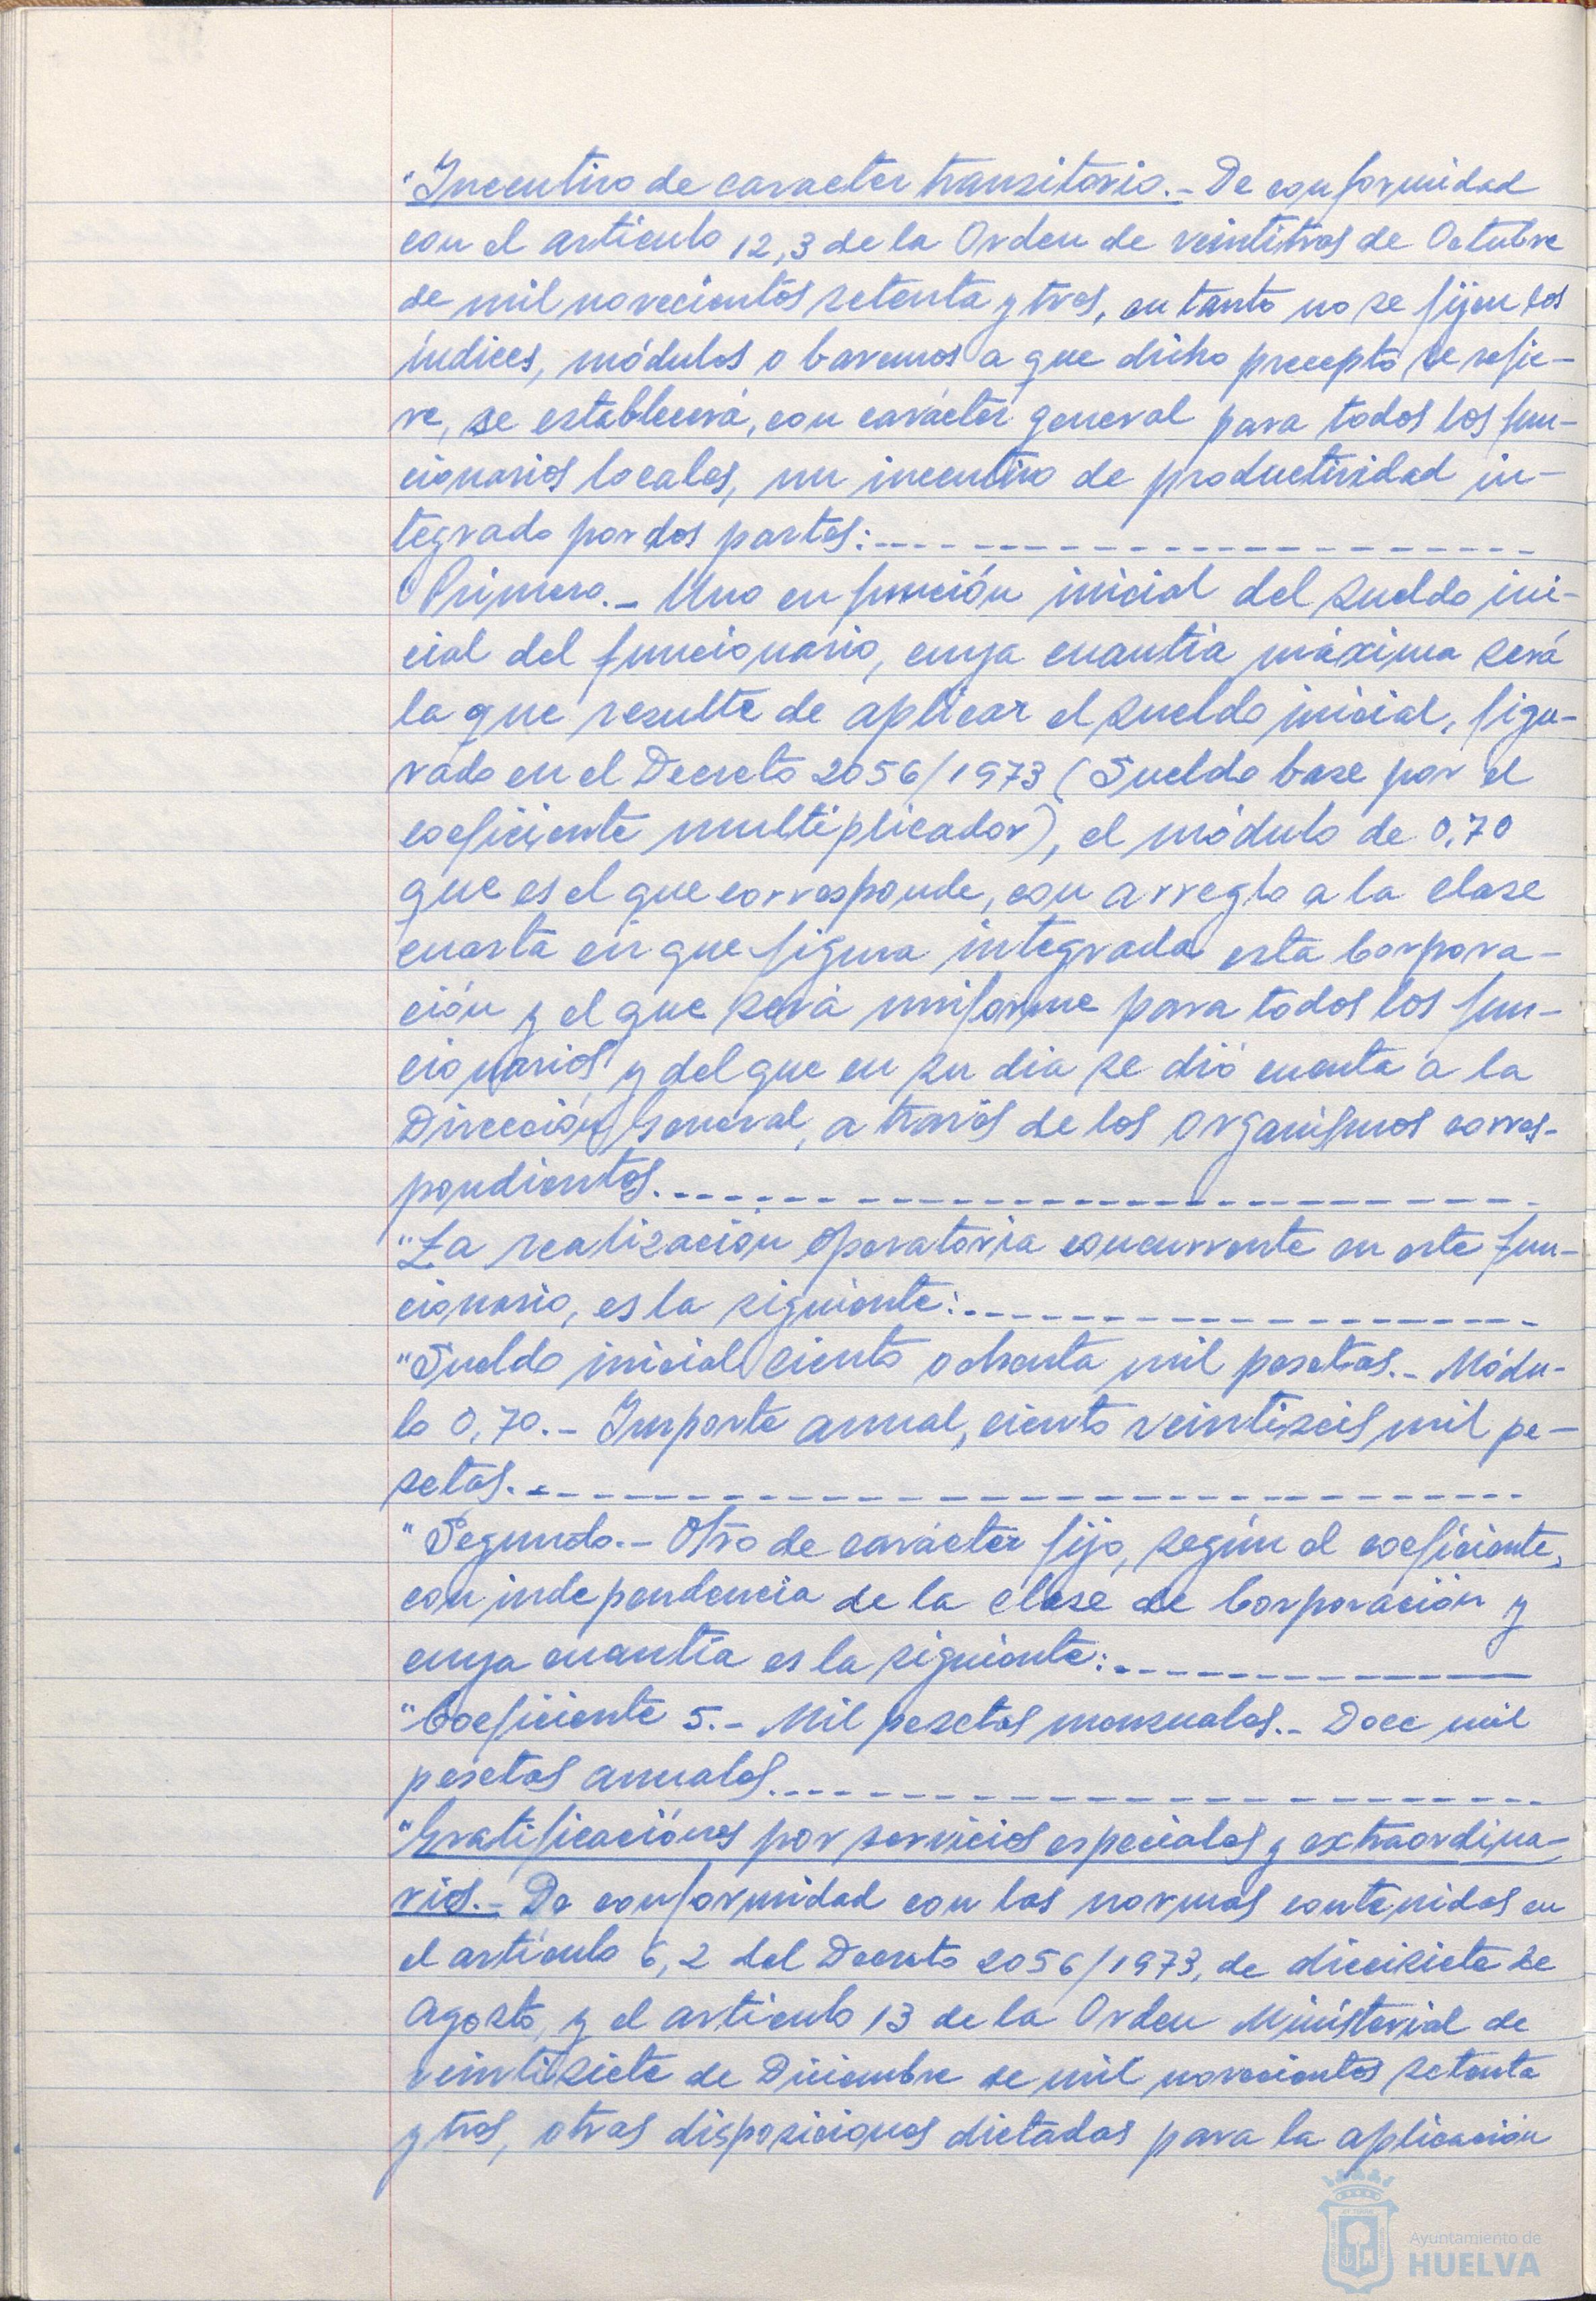 "Incentivo de caracter transitorio.- De conformidad
con el articulo 12,3 de la Orden de veintitres de Octubre
de mil novecientos setenta y tres, en tanto no se fijen los
índices, módulos o baremos a que dicho precepto se refie-
re, se establecerá, con carácter general para todos los fun-
cionarios locales, un incentivo de productividad in-
tegrado por dos partes:
"Primero.- Uno en función inicial del sueldo ini-
cial del funcionario, cuya cuantía máxima será
la que resulte de aplicar el sueldo inicial, figu-
rado en el Decreto 2056/1973 (Sueldo base por el
coeficiente multiplicador), el módulo de 0,70
que es el que corresponde, con arreglo a la clase
cuarta en que figura integrada esta Corpora-
ción y el que será uniforme para todos los fun-
cionarios y del que en su dia se dió cuenta a la
Dirección General, a través de los Organismos corres-
pondientes.
"La realización operatoria concurrente en este fun-
cionario, es la siguiente:
"Sueldo inicial ciento ochenta mil pesetas.- Módu-
lo 0,70.- Importe anual, ciento veintiseis mil pe-
setas.
"Segundo.- Otro de carácter fijo, según el coeficiente,
con independencia de la clase de Corporación y
cuya cuantía es la siguiente:
"Coeficiente 5.- Mil pesetas mensuales.- Doce mil
pesetas anuales.
"Gratificaciónes por servicios especiales y extraordina-
rios.- De conformidad con las normas contenidas en
el artículo 6,2 del Decreto 2056/1973, de diecisiete de
Agosto, y el artículo 13 de la Orden Ministerial de
veintisiete de Diciembre de mil novecientos setenta
y tres, otras disposiciones dictadas para la aplicación
Ayuntamiento de
HUELVA